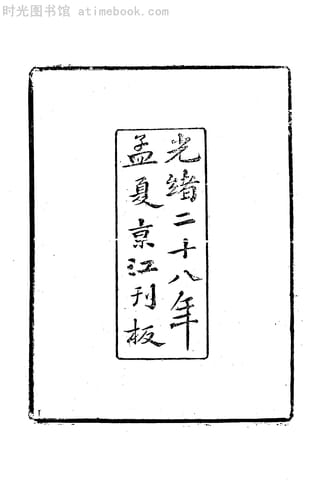 时光图书馆 - atimebook.com
光緒二十八年
孟夏京江刊板